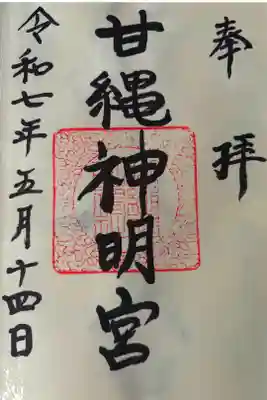 奉拝
甘縄神明宮
令和七年五月十四日